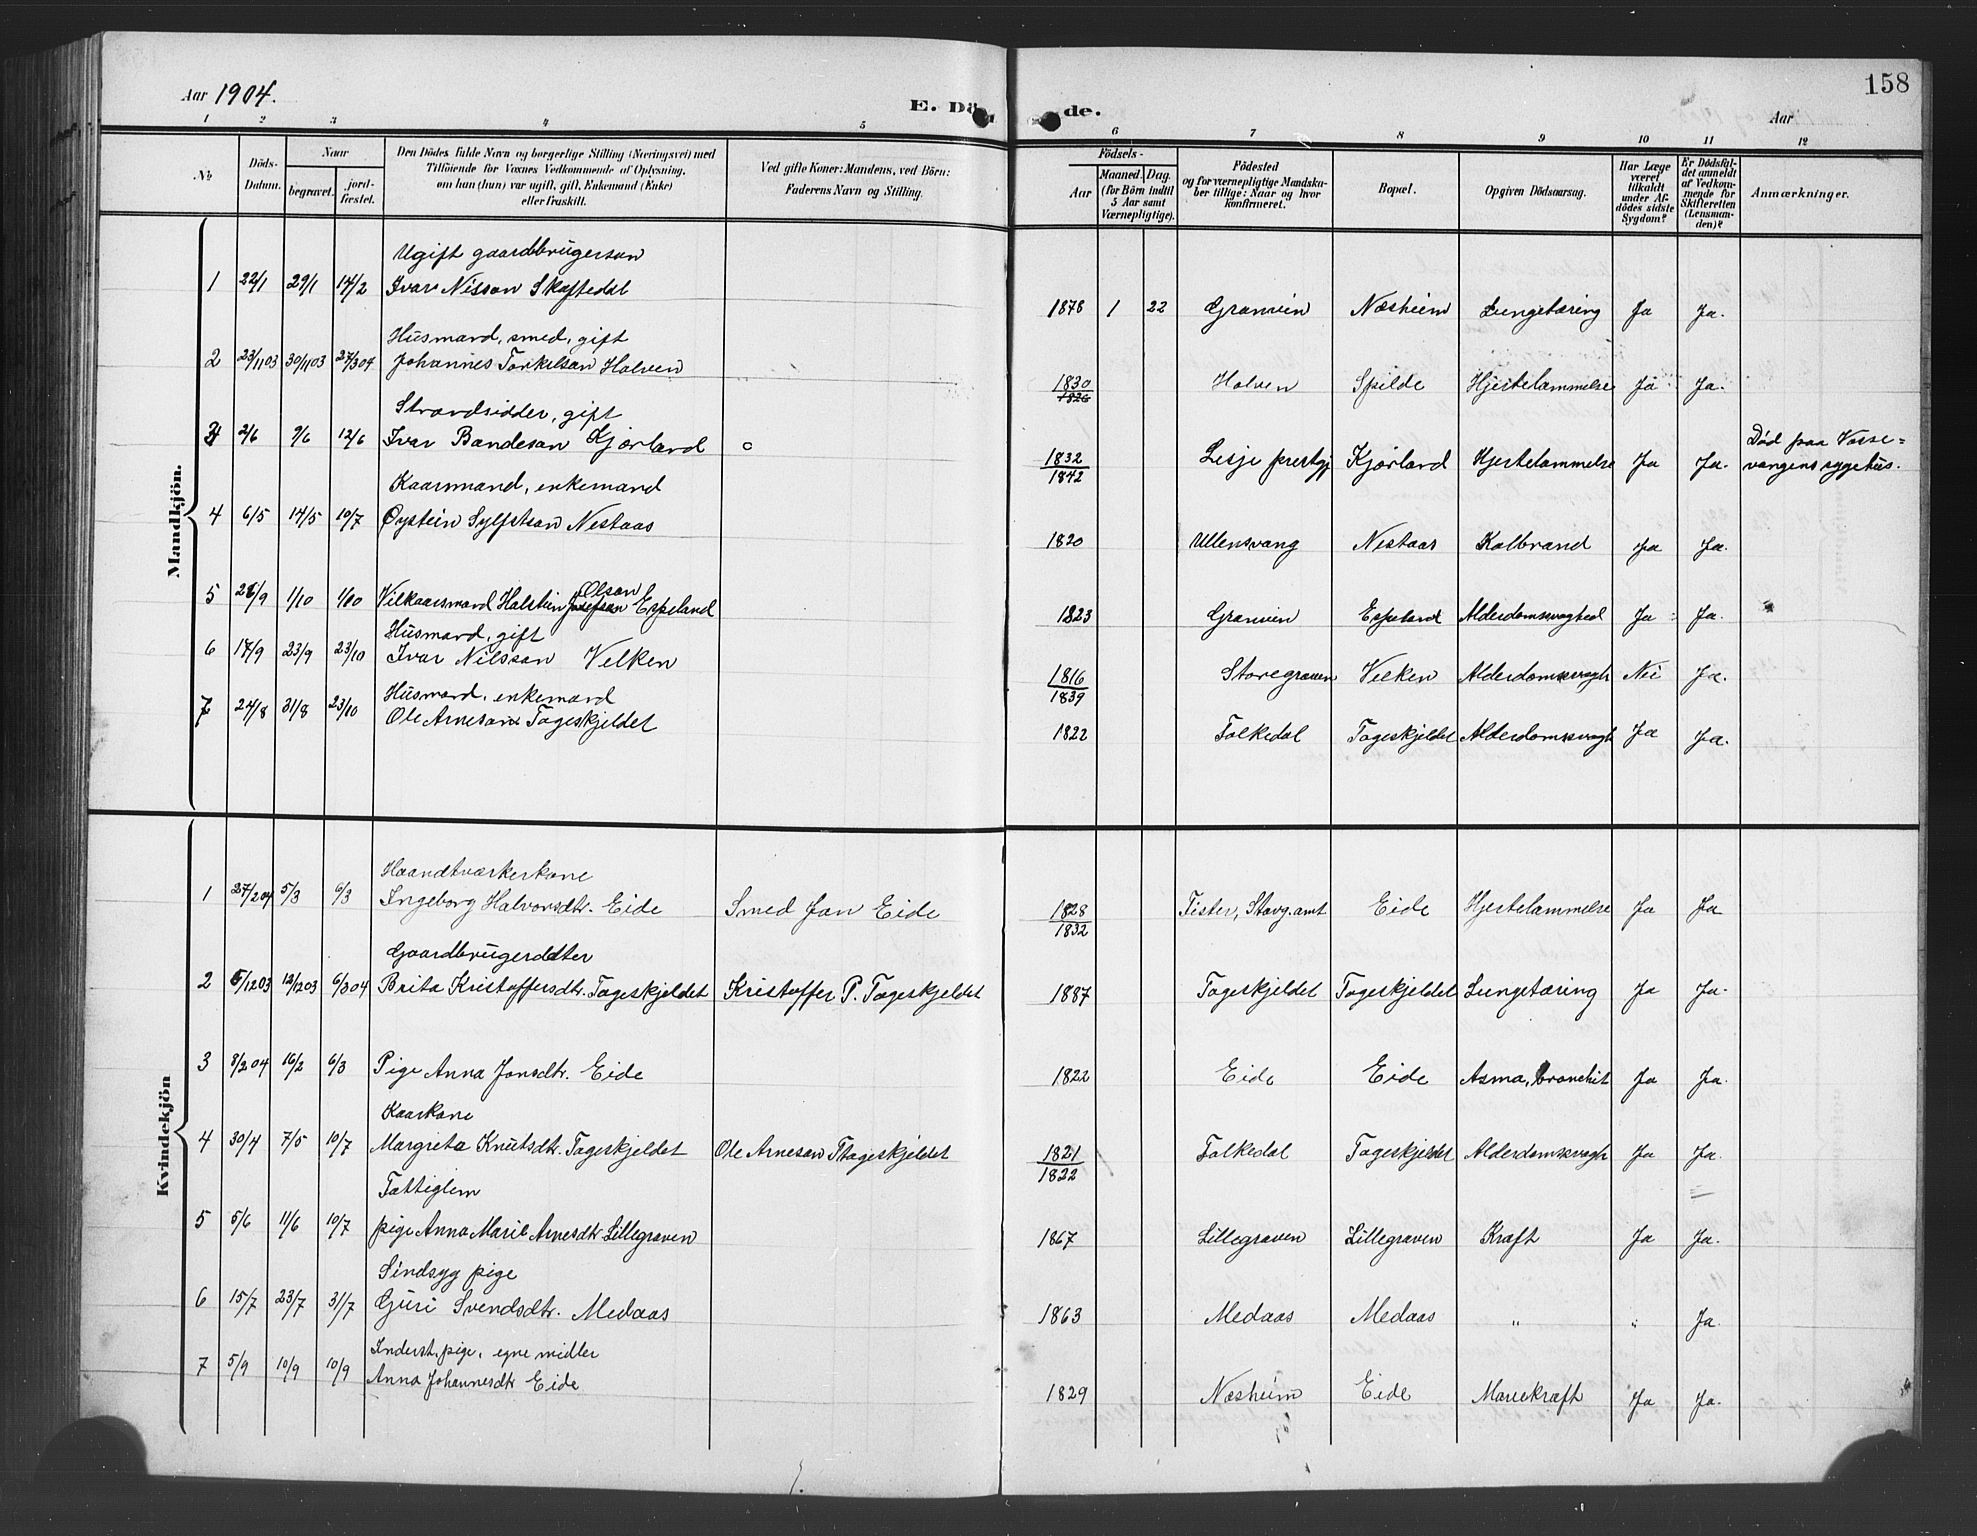 158
Aar 1904.
E. Dö de.
Aar
1 2 3 4 5 6 7 8 9 10 11 12
No
Döds-Datum.
Naar
begravet.
jord-fæstet.
Den Dödes fulde Navn og borgerlige Stilling (Næringsvei) med
Tilföiende for Voxnes Vedkommende af Oplysning,
om han (hun) var ugift, gift, Enkemand (Enke)
eller fraskilt.
Ved gifte Koner: Mandens, ved Börn:
Faderens Navn og Stilling.
Födsels-
Aar
Maaned. Dag.
(for Börn indtil
5 Aar samt
Værnepligtige).
Födested
og for værnepligtige Mandska-
ber tillige: Naar og hvor
konfirmeret.
Bopæl.
Opgiven Dödsaarsag.
Har Læge
været
tilkaldt
under Af-
dödes sidste
Sygdom?
Er Dödsfal-
det anmeldt
af Vedkom-
mende for
Skifteretten
(Lensman-
den)?
Anmærkninger.
Mandkjön.
Ugift gaardbrugerson
1 22/1 29/1 14/2 Ivar Nilsson Skaftedal 1878 1 22 Granvin Næsheim Lungetæring Ja Ja.
Husmand, smed, gift
2 23/11 03 30/11 03 27/3 04 Johannes Torkelson Holven 1830 1826 Holven Spilde Hjertelammelse Ja Ja.
Strandsidder, gift
3 2/6 9/6 12/6 Ivar Bandeson Kjørland 1832 1842 Lesje prestgj Kjørland Hjertelammelse Ja Ja. Død paa Vosse-
vangens sygehus.
Kaarmand, enkemand
4 6/5 14/5 10/7 Øystein Sylfestson Nestaas 1820 Ullensvang Nestaas Kolbrand Ja Ja.
Olson
5 26/9 1/10 1/10 Vilkaarsmand Halstein Josefson Espeland 1823 Granvin Espeland Alderdomssvaghed Ja Ja.
Husmand, gift
6 17/9 23/9 23/10 Ivar Nilsson Velken 1816 1839 Storegraven Velken Alderdomssvagh Nei Ja.
Husmand, enkemand
7 24/8 31/8 23/10 Ole Arneson Tageskjeldet 1822 Folkedal Tageskjeldet Alderdomssvagh Ja Ja.
Kvindekjön
Haandtværkerkone
1 27/2 04 5/3 6/3 Ingeborg Halvorsdtr. Eide Smed Jan Eide 1828 1832 Tister, Stavg. amt Eide Hjertelammelse Ja Ja
Gaardbrugerdatter
2 5/12 03 12/12 03 6/3 04 Brita Kristoffersdtr. Tageskjeldet Kristoffer P. Tageskjeldet 1887 Tageskjeldet Tageskjeldet Lungetæring Ja Ja.
3 8/2 04 16/2 6/3 Pige Anna Jonsdtr. Eide 1822 Eide Eide Asma, bronchit Ja Ja.
Kaarkone
4 30/4 7/5 10/7 Margreta Knutsdtr. Tageskjeldet Ole Arneson Tageskjeldet 1821 1822 Folkedal Tageskjeldet Alderdomssvagh Ja Ja.
Fattiglem
5 5/6 11/6 10/7 pige Anna Marie Arnesdtr Lillegraven 1867 Lillegraven Lillegraven Kræft Ja Ja.
Sindsyg pige
6 15/7 23/7 31/7 Guri Svendsdtr. Medaas 1863 Medaas Medaas " " Ja.
Inderst, pige, egne midler
7 5/9 10/9 10/9 Anna Johannesdtr Eide 1829 Næsheim Eide Mavekræft Ja Ja.